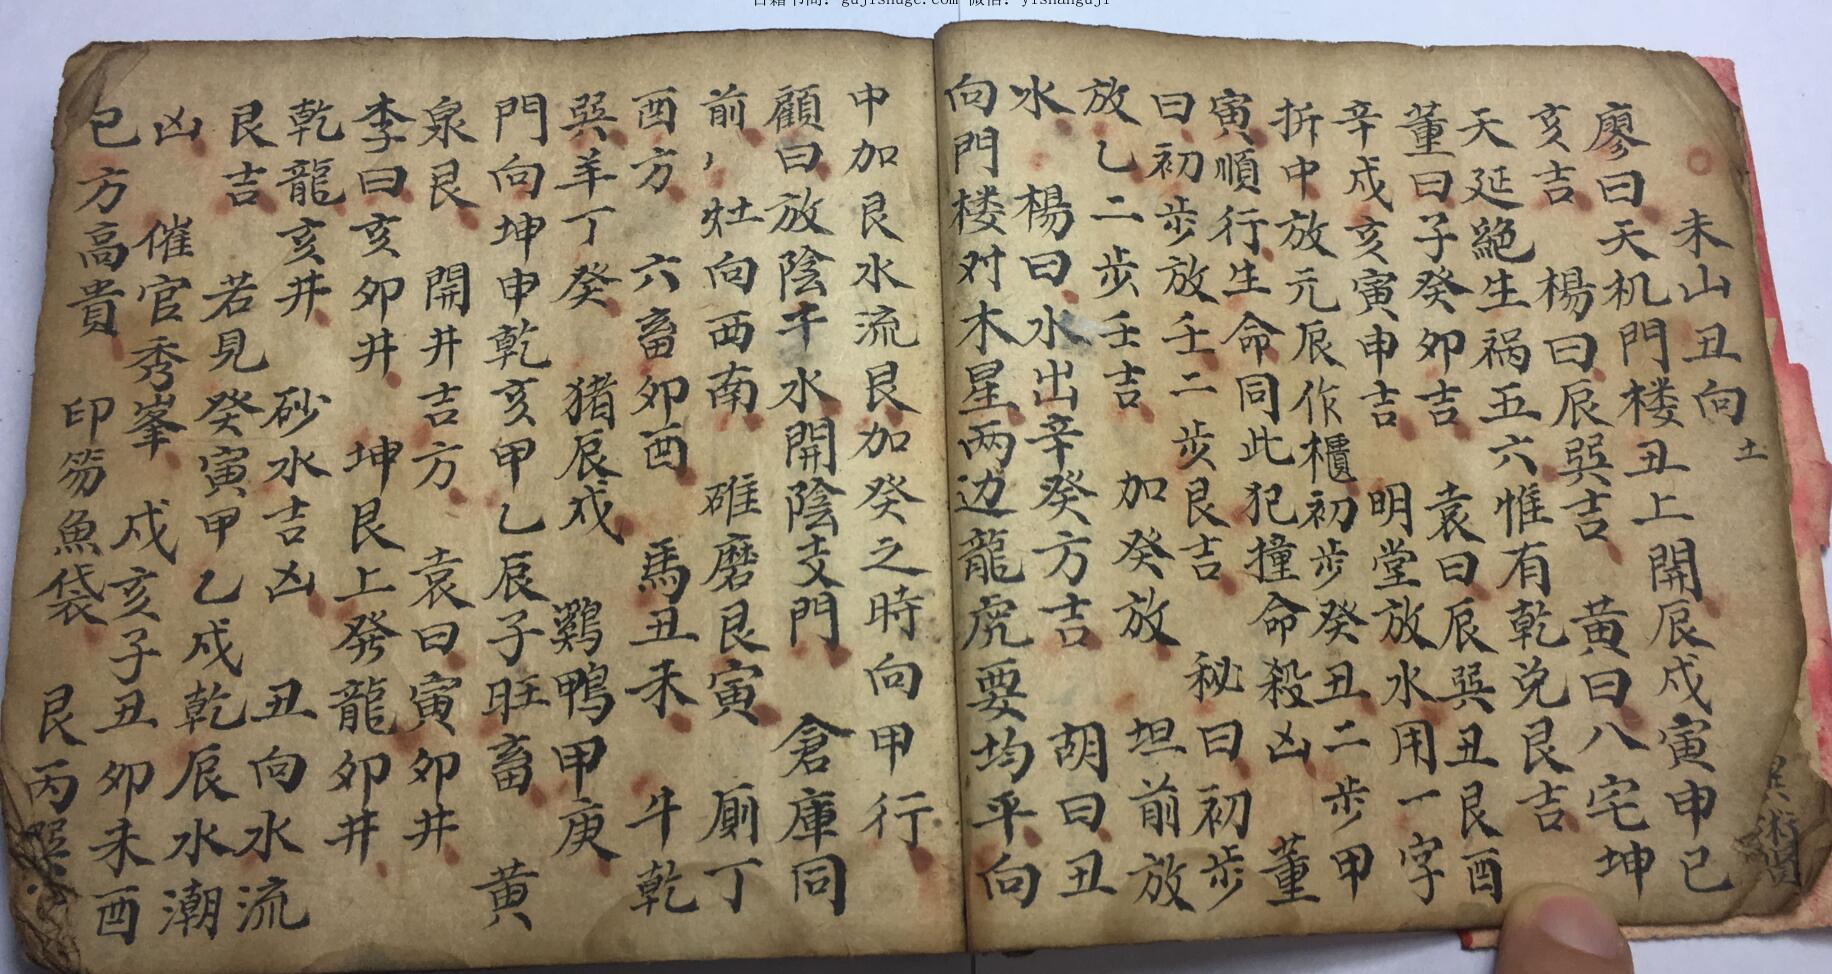 未山丑向 土
廖曰天机門楼丑上開辰戍寅申巳
亥吉 楊曰辰巽吉 黄曰八宅坤
天延絕生禍五六惟有乾兌艮吉
董曰子癸卯吉 袁曰辰巽丑艮酉
辛戍亥寅申吉 明堂放水用一字
拆中放元辰作櫃初步癸丑二步甲
寅順行生命同此犯撞命殺凶 董
曰初步放壬二步艮吉 秘曰初步
放乙二步壬吉 加癸放 坦前放
水 楊曰水出辛癸方吉 胡曰丑
向門楼对木星两边龍虎要均平向
中加艮水流艮加癸之時向甲行
顧曰放陰干水開陰支門 倉庫同
前 灶向西南 碓磨艮寅 厠丁
酉方 六畜卯酉 馬丑未 牛乾
巽羊丁癸 猪辰戍 鷄鴨甲庚
門向坤申乾亥甲乙辰子旺畜 黄
泉艮 開井吉方 袁曰寅卯井
李曰亥卯井 坤艮上發龍卯井
乾龍亥井 砂水吉凶 丑向水流
艮吉 若見癸寅甲乙戍乾辰水潮
凶 催官秀峯 戍亥子丑卯未酉
巳方高貴 印笏魚袋 艮丙